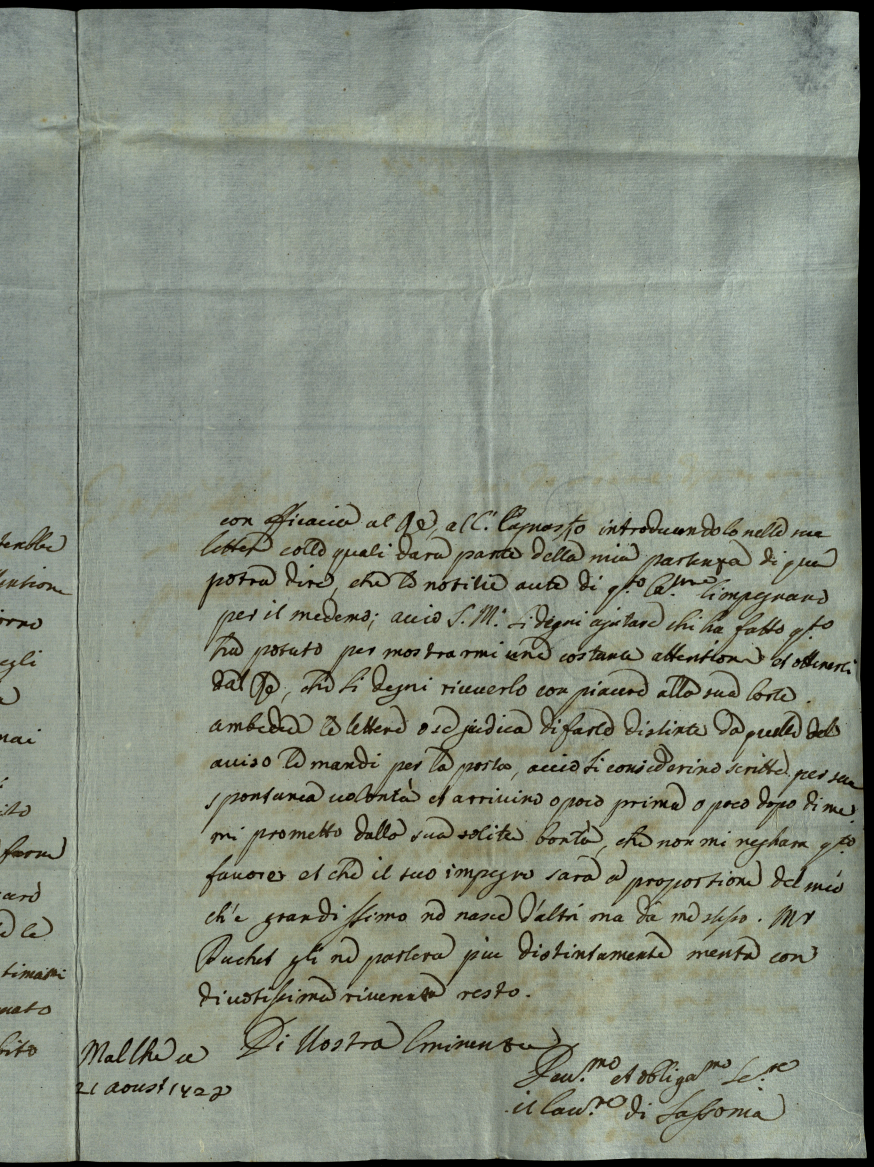 tenebbe
tentione
orno
egli
a
mai
i
ito
farne
card
de la
timati
nato
bito
con efficacia al Rè, al C. introducendolo nelle sue
lettere colle quali darà parte della mia partenza di quà
potra dire, che le notitie aute di q.to l'impegnano
per il medemo; accio S. M. si degni ajutare chi ha fatto q.to
ha potuto per mostrarmi una costante attentione et ottenerli
dal Rè, che si degni riceverlo con piacere alla sua Corte.
ambedue le lettere o se judica di farle distinte da quelle del
aviso le mandi per la posta, accio si considerino scritte per sua
spontanea volontà et arrivino o poco prima o poco dopo di me.
mi prometto dalla sua solita bontà, che non mi neghara q.to
favore et che il suo impegno sarà a proportione del mio
ch'e grandissimo ne nasce d'altri ma da me stesso. Mr
Buchet gli ne parlera piu distintamente mentre con
divotissima riverenza resto.
Di Vostra Eminenza
Malthe ce
21 aoust 172
Dev.mo et obliga.mo Se.re
il Cav.re di Sassonia